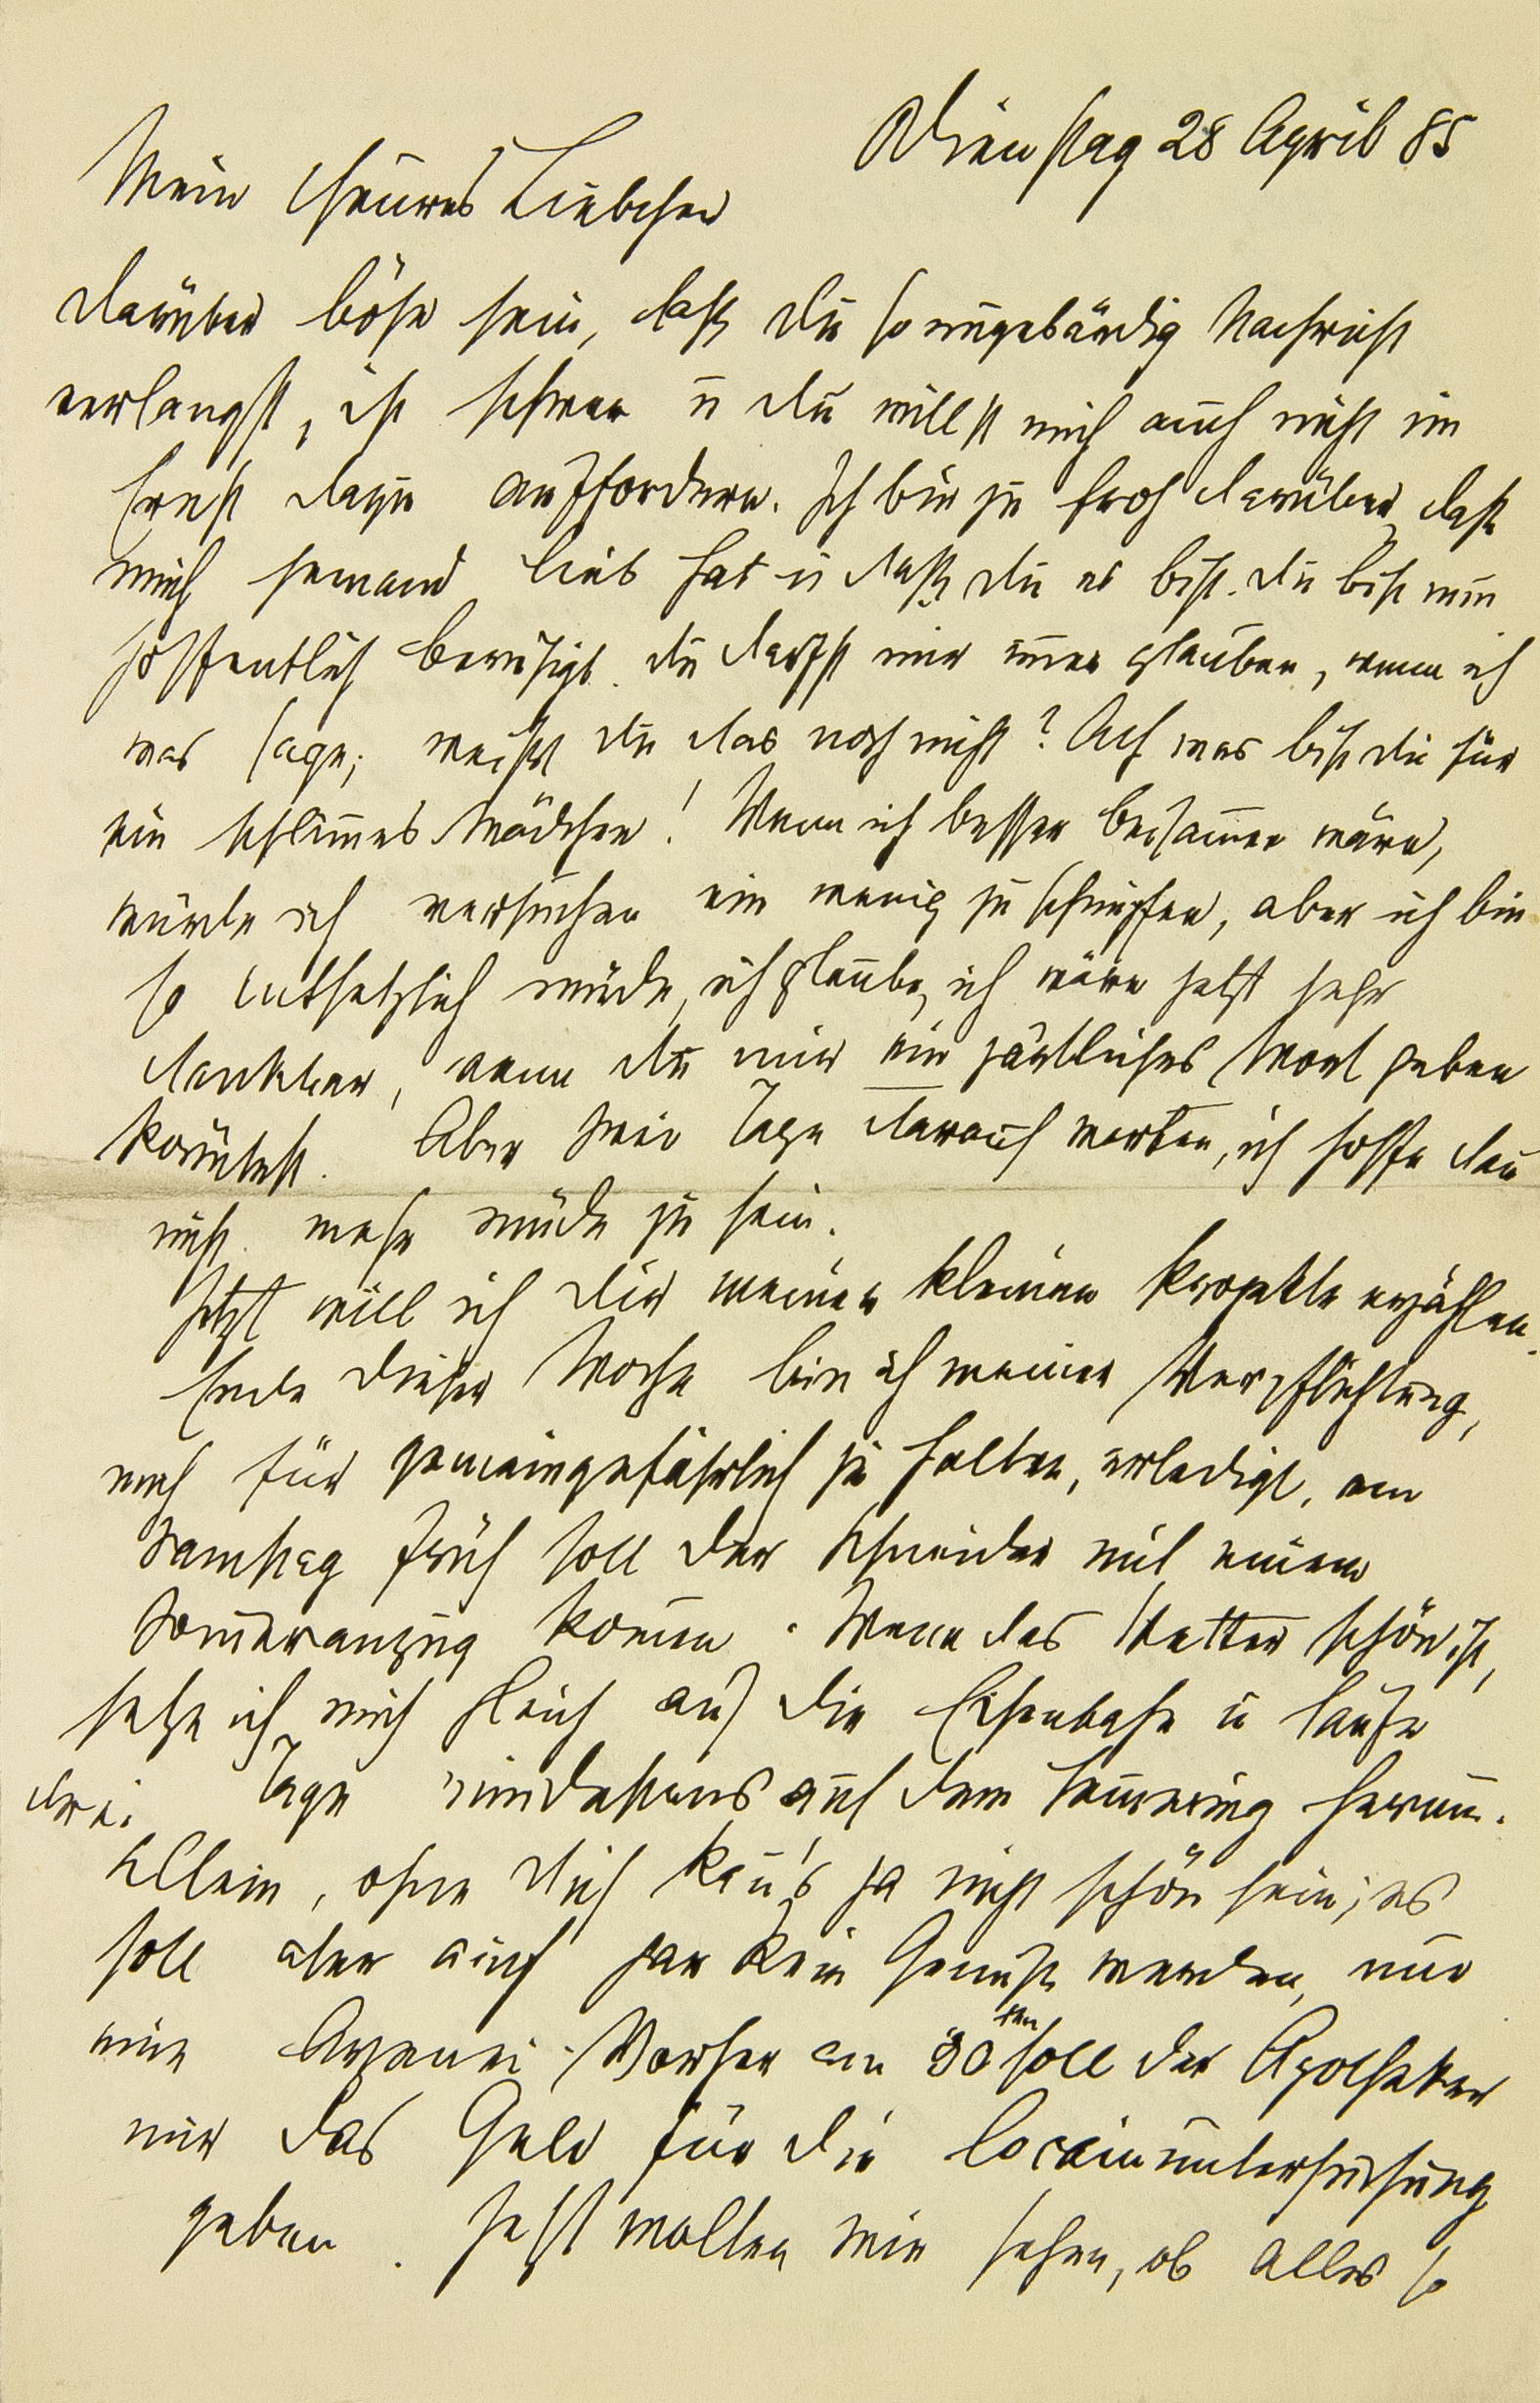 Dienstag 28 April 85
Mein theures Liebchen
Darüber böse sein, daß Du so ungebärdig Nachricht
verlangst, ist schwer u Du willst mich auch nicht im
Ernst dazu auffordern. Ich bin zu froh darüber, daß
mich jemand lieb hat u daß Du es bist. Du bist nun
hoffentlich beruhigt. Du darfst mir im̄er glauben, wenn ich
was sage; weißt Du das noch nicht? Ach was bist Du für
ein schlim̄es Mädchen! Wenn ich besser beisam̄en wäre,
würde ich versuchen ein wenig zu schimpfen, aber ich bin
so entsetzlich müde, ich glaube, ich wäre jetzt sehr
dankbar, wenn Du mir ein zärtliches Wort geben
kön̄test. Aber drei Tage darauf warten, ich hoffe dan̄
nicht mehr müde zu sein.
Jetzt will ich Dir meine kleinen Projekte erzählen.
Ende dieser Woche bin ich meiner Verpflichtung,
mich für gemeingefährlich zu halten, erledigt, am
Samstag früh soll der Schneider mit einem
Som̄eranzug kom̄en. Wenn das Wetter schön ist,
setze ich mich gleich auf die Eisenbahn u laufe
drei Tage mindestens auf dem Sem̄ering herum.
Allein, ohne Dich kan̄'s ja nicht schön sein; es
soll aber auch gar kein Genuß werden, nur
eine Arznei. Vorher am 30sten soll der Apotheker
mir das Geld für die Cocainuntersuchung
geben. Jetzt wollen wir sehen, ob alles so